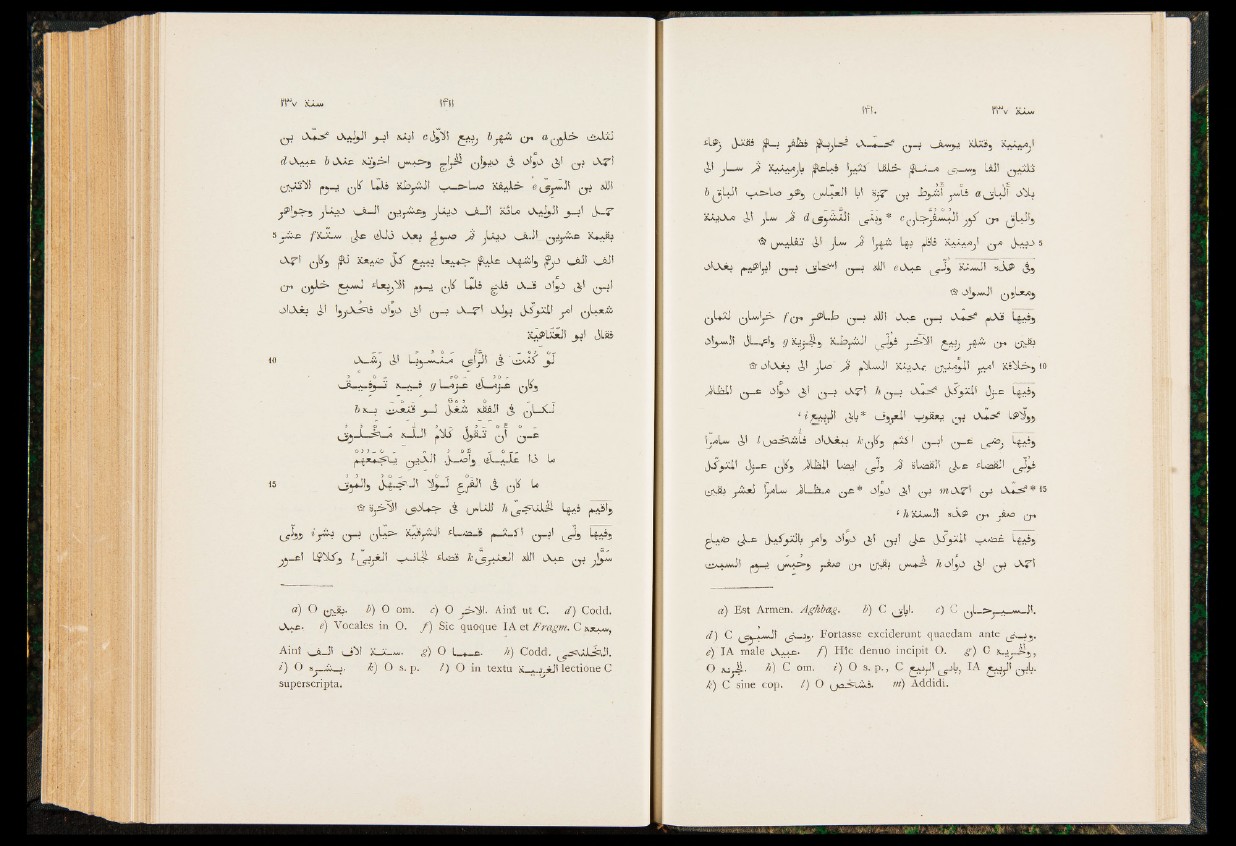 سنة ٢٣٧ ١٤١٠
ارمينية وقتلة يوسف بن محمد فحاربهم بها فظفر بهم فقتل زهاء
ثلثين الفا وسبى منهم خلقا كثيرا فباعهم بارمينية ثم سار الى
بلاد الباق a فأسر أشُوط بن حمزة ابا العبّاس وهو صاحب الباق b
والباق من كور البُسْفُرَّجان c *وبنى النَّشَوَى d ثم سار الى مدينة
دبيل من ارمينية فاقام بها شهرا ثم سار الى تفليس ۞ 5
وفى هذه السنة وُلّى عبد e الله بن اسحاق بن ابراهيم بغداد
ومعاون السواد ۞
وفيها قدم محمّد بن عبد الله بن طاهر من f خراسان لثمان
بقين من شهر ربيع الآخر فوُلّى الشرطة والجزية g واعمال السواد
وخلافة امير المؤمنين بمدينة السلام ثم صار الى بغداد ۞ 10
وفيها عزل المتوكّل محمّد بن h احمد بن ابى دواد عن المظالم
وولّاها محمّد بن يعقوب المعروف *بابى الربيع i ،
وفيها رضى عن ابن اكثم وكان k ببغداد فأشخص l الى سامرّا
فوُلّى القضاء على القضاة ثم ولّى ايضا المظالم وكان عزل المتوكّل
*محمّد بن احمد m بن ابى دؤاد *عن مظالم سامرّا لعشر بقين 15
من صفر من هذه السنة h ،
وفيها غضب المتوكّل على ابن ابى دؤاد وامر بالتوكيل على ضياع
احمد بن ابى دؤاد h لخمس بقين من صفر وحُبس يوم السبت
a) Est Armen. Aghbag. b) C ابان. c)
d) C وبنى . Fortasse exciderunt quaedam ante وبنى.
e) IA male عبيد. f) Hic denuo incipit O. g) C
O h) C om. i) O s. p., C بابى الربيع, IA بابن الربيع.
k) C sine cop. l) O فشاخص. m) Addidi.
سنة ٢٣٧ ١٤١١
لثلث خلون a من شهر b ربيع الأوّل c ابنه ابو الوليد محمّد بن
احمد بن ابى دؤاد فى ديوان الخراج وحبس اخوته عند b عبيد d
الله بن السرىّ e خليفة صاحب الشرطة فلمّا كان يوم الاثنين
حمل ابو الوليد مائة الف دينار وعشرين الف دينار وجوهر
بقيمة عشرين الف دينار ثم صولح بعد ذلك على ستّة f عشر 5
الف الف درهم واشهد عليهم جميعا ببيع كلّ ضيعة لهم وكان احمد
ابن ابى دؤاد قد فلج فلمّا كان يوم الاربعاء لسبع خلون من
شعبان امر المتوكّل بولد احمد بن ابى دؤاد فحُدّروا الى بغداد
فقال ابو العَتَاهِيَة
لَوْ كُنْتَ فى الرَّأْىِ مَنْسُوبًا الى رَشَدٍ 10
وكان عَزْمُكَ عَزْمًا g فيه تَوْفِيقُ
لكانَ فى الفِقْهِ شُغْلٌ لو قَنِعْتَ به b
عن أَنْ تَقُولَ كَلامُ اللّه مَخْلُوقُ
ما ذا عَلَيْكَ وأَصْلُ الدِّينِ يَجْمَعُهُمْ
ما كان فى الفَرْعِ لَوْلا الجَهْلُ والمُوقُ 15
واقيم فيها الخَلَنْجىّ h للناس فى جمادى الآخرة ۞
وفيها ولّى ابن اكثم قضاء الشرقيّة حيّان بن بشر i وولّى
سَوّار بن عبد الله العنبرىّ k قضاء الجانب الغربىّ l وكلاهما اعور
a) O بقين. b) O om. c) O الآخر. Ainî ut C. d) Codd.
عبد. e) Vocales in O. f) Sic quoque IA et Fragm. C سبعة,
Ainî ستة الاف الف. g) O عما. h) Codd.
i) O k) O s. p. l) O in textu الغربية lectione C
superscripta.